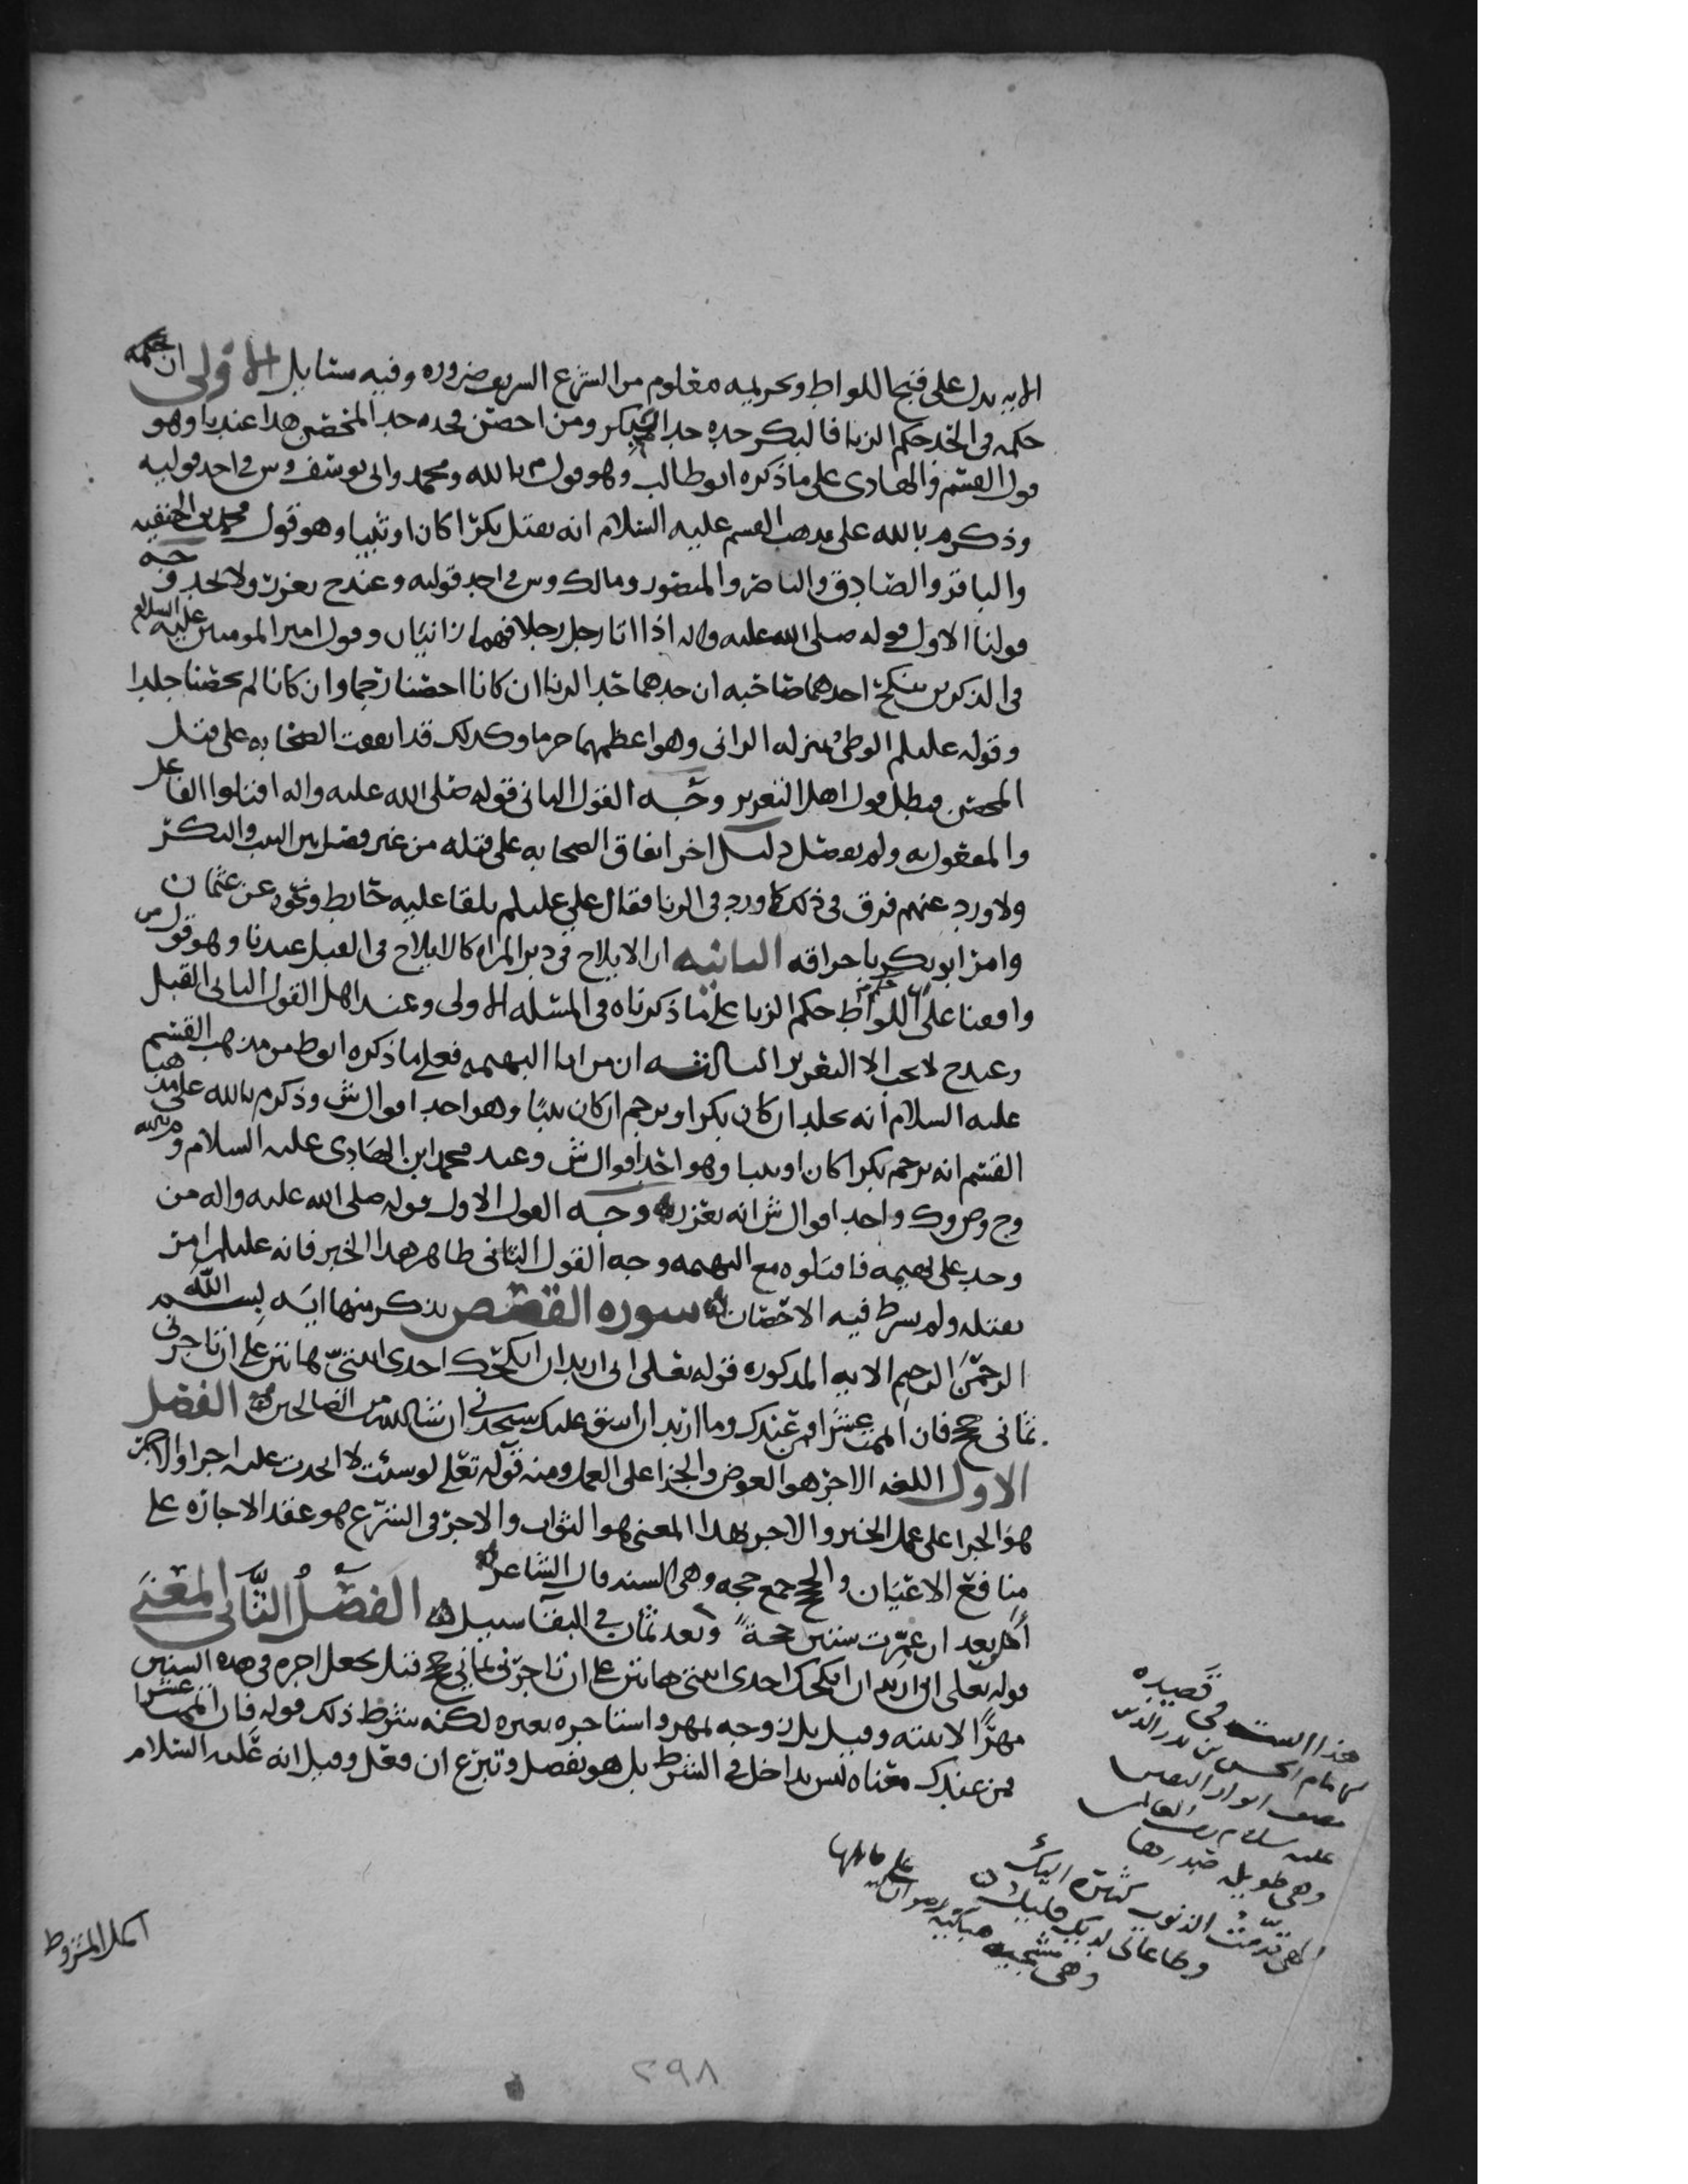 الايه يدل على قبح اللواط وتحريمه معلوم من الشرع الشريف ضروره وفيه مسايل الاولى ان حكمه
حكمه فى الحد حكم الزنا فالبكر حده حد البكر ومن احصن فحده حد المحصن هذا عندنا وهو
قول القسم والهادى على ما ذكره ابو طالب وهو قول م بالله ومحمد وابى يوسف وش فى احد قوليه
وذكر م بالله على مذهب القسم عليه السلام انه يقتل بكرا كان او ثيبا وهو قول محمد بن الحنفيه
والباقر والصادق والناصر والمنصور ومالك وش فى احد قوليه وعند ح يعزر ولا يحد وجه
قولنا الاول قوله صلى الله عليه واله اذا اتا رجل رجلا فهما زانيان وقول امير المومنين عليه السلام
فى الذكرين ينكح احدهما صاحبه ان حدهما حد الزنا ان كانا احصنا رجما وان كانا لم يحصنا جلدا
وقوله عليلم الوطى بمنزله الزانى وهو اعظمهما جرما وكذلك قد اتفقت الصحابه على قتل
المحصن فبطل قول اهل التعزير وجه القول الثانى قوله صلى الله عليه واله اقتلوا الفاعل
والمفعول به ولم يفصل دليل اخر اتفاق الصحابه على قتله من غير فصل بين الثيب والبكر
ولا ورد عنهم فرق فى ذلك كما ورد فى الزنا فقال على عليلم يلقا عليه حايط ونحوه عن عثمان
وامر ابو بكر باحراقه الثانيه ان الايلاج فى دبر المراه كالايلاج فى القبل عندنا وهو قول من
وافقنا على ان حكم اللواط حكم الزنا على ما ذكرناه فى المسئله الاولى وعند اهل القول الثانى القتل
وعند ح لا يجب الا التعزير الثالثه ان من اتا البهيمه فعلى ما ذكره ابو ط من مذهب القسم
عليه السلام انه يجلد ان كان بكرا ويرجم ان كان ثيبا وهو احد اقوال ش وذكر م بالله على مذهب
القسم انه يرجم بكرا كان او ثيبا وهو احد اقوال ش وعند محمد ابن الهادى عليه السلام و
وح وص وك واحد اقوال ش انه يعزر وجه القول الاول قوله صلى الله عليه واله من
وجد على بهيمه فاقتلوه مع البهيمه وجه القول الثانى ظاهر هذا الخبر فانه عليلم امر
بقتله ولم يشرط فيه الاحصان سوره القصص نذكر منها ايه بسم الله
الرحمن الرحيم الايه المذكوره قوله تعلى انى اريد ان انكحك احدى ابنتى هاتين على ان تاجرنى
ثمانى حجج فان اتممت عشرا فمن عندك وما اريد ان اشق عليك ستجدنى ان شا الله من الصالحين الفصل
الاول اللغه الاجر هو العوض والجزا على العمل ومنه قوله تعلى لو شئت لاتخذت عليه اجرا والاجر
هو الجزا على عمل الخير والاجر بهذا المعنى هو الثواب والاجر فى الشرع هو عقد الاجاره على
منافع الاعيان والحجج جمع حجه وهى السنه قال الشاعر
أمن بعد ان عمرت ستين حجة وبعد ثمان فى البقا سبيل الفصل الثانى المعنى
قوله تعلى انى اريد ان انكحك احدى ابنتى هاتين على ان تاجرنى ثمانى حجج قيل يجعل اجره فى هذه السنين
مهرا لابنته وقيل بل زوجه بمهر واستاجره بغيره لكنه شرط ذلك قوله فان اتممت عشرا
فمن عندك معناه ليس بداخل فى الشرط بل هو تفضل وتبرع ان فعل وقيل انه عليه السلام
هذا البيت فى قصيده
للامام الحسن بن بدر الدين
مصنف انوار اليقين
عليه سلام رب العالمين
وهى طويله صدرها
الهى قدمت الذنوب كثيره اليك
وطاعاتى لديك قليل
وهى
اكمل المشروط
٢٩٨